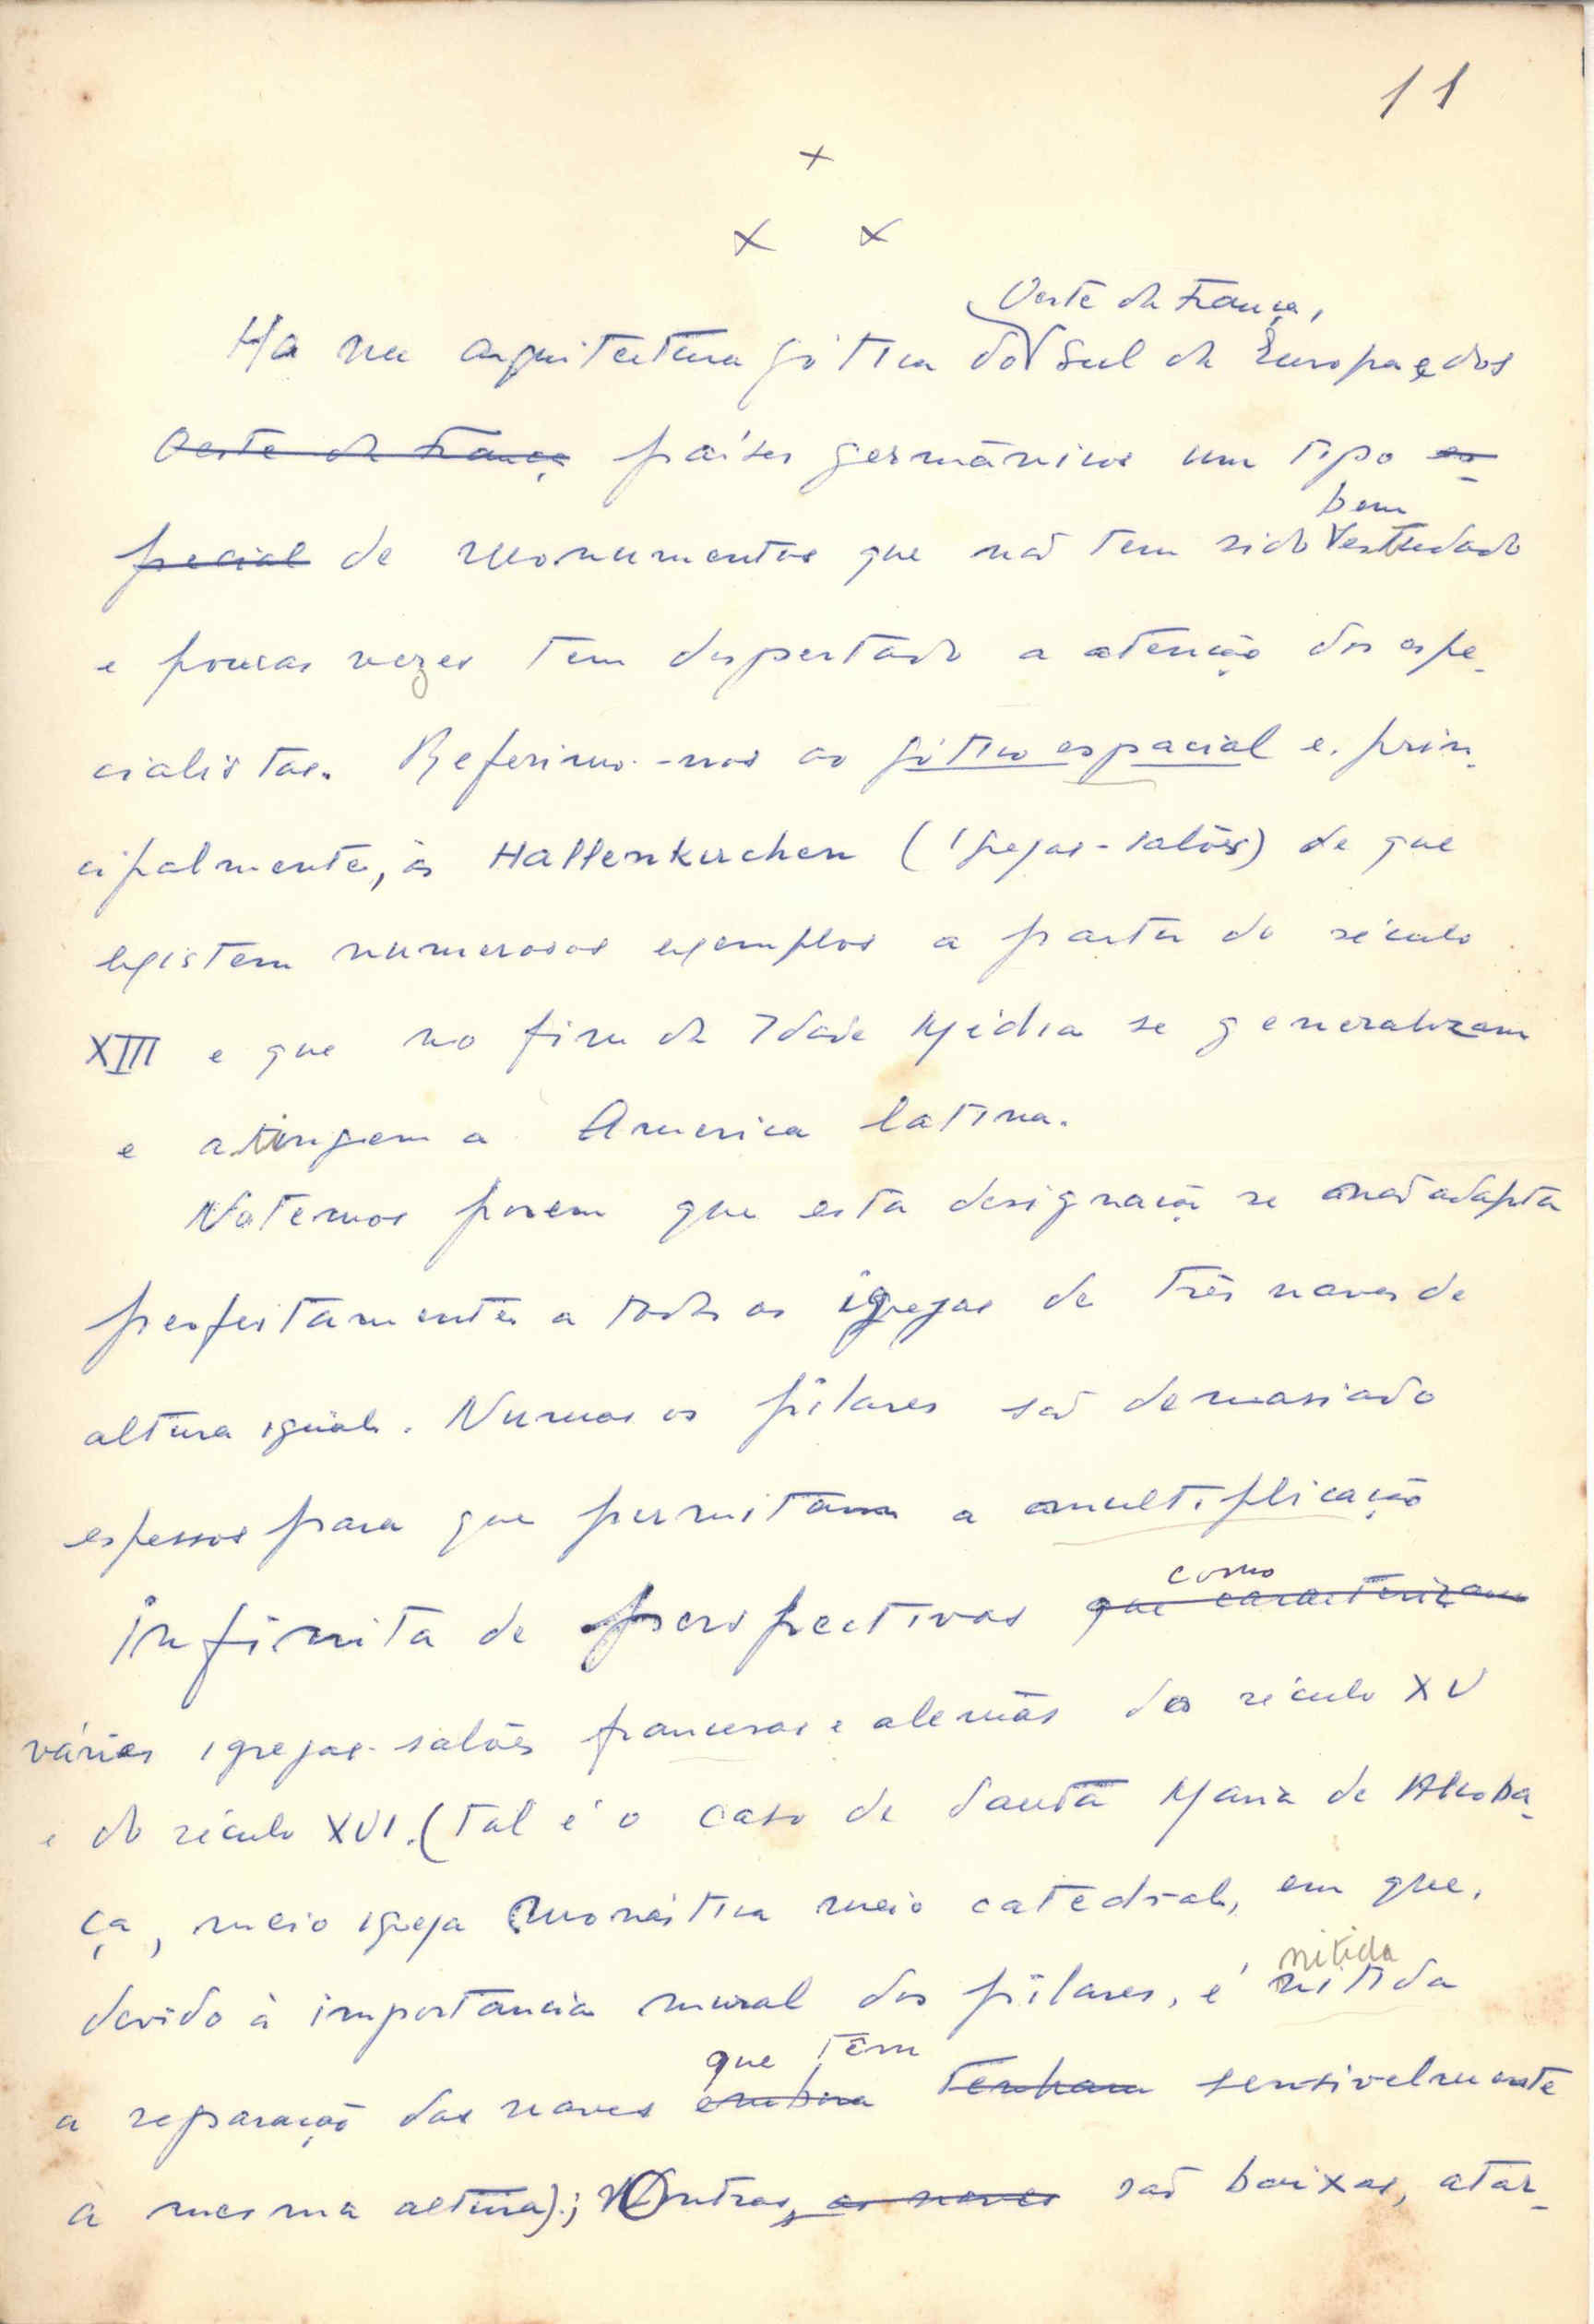 11
+
x x
Oeste da França,
Ha na arquitectura gótica do Sul da Europa e dos
Oeste da França países germânicos um tipo es-
bem
pecial de monumentos que não tem sido estudado
e poucas vezes tem despertado a atenção dos espe-
cialistas. Referimo-nos ao gótico espacial e, prin-
cipalmente, às Hallenkirchen (igrejas-salões) de que
existem numerosos exemplos a partir do século
XIII e que no fim da Idade Média se generalizam
e atingem a America latina.
Notemos porem que esta designação se não adapta
perfeitamente a todas as igrejas de três naves de
altura igual. Numas os pilares são demasiado
espessos para que permitam a multiplicação
como
infinita de perspectivas que caracterizam
várias igrejas-salões francesas e alemãs do século XV
e do século XVI. (Tal é o caso de Santa Maria de Alcoba-
ça, meio igreja monástica meio catedral, em que,
nitida
devido à importancia mural dos pilares, é nitida
que têm
a separação das naves embora tenham sensivelmente
a mesma altura).; Noutras, as naves são baixas, atar-